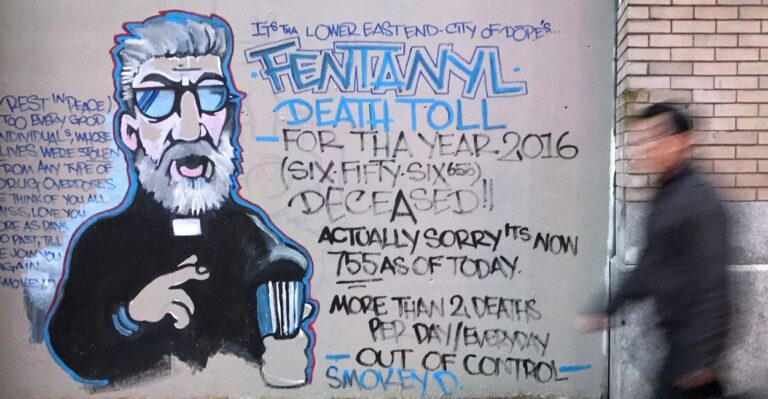 (REST IN PEACE)
TOO EVERY GOOD
NDIVIDUALS, WHOSE
LIVES WERE STOLEN
FROM ANY TYPE OF
DRUG OVERDOSES
E THINK OF YOU ALL
MISS, LOVE YOU
ORE AS DAYS
O PAST, TILL
E JOIN YOU
AGAIN
SMOKEY D.
ITS THA LOWER EAST END-CITY OF DOPE'S...
FENTANYL.
DEATH TOLL
-FOR THA YEAR.2016
(SIX.FIFTY.SIX 656)
DECEASED!!
ACTUALLY SORRY ITS NOW
755 AS OF TODAY.
MORE THAN 2 DEATHS
PER DAY/EVERYDAY
-OUT OF CONTROL-
SMOKEY D.